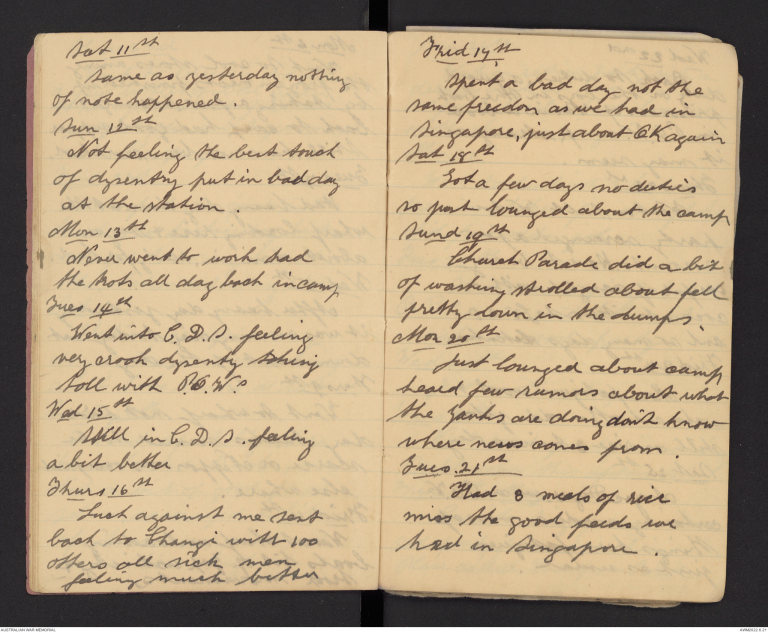 Sat 11st
Same as yesterday nothing
of note happened.
Sun 12st
Not feeling the best touch
of dysentry put in bad day
at the station.
Mon 13th
Never went to work had
the trots all day back in camp
Tues 14th
Went into C.D.S. feeling
very crook dysentry taking
toll with P.O.W.s
Wed 15th
Still in C.D.S. feeling
a bit better
Thurs 16st
Luck against me sent
back to Changi with 100
others all sick men
feeling much better
Frid 17st
Spent a bad day not the
same freedon as we had in
Singapore, just about OK again
Sat 18th
Got a few days no duties
so just lounged about the camp
Sund 19st
Church Parade did a bit
of washing strolled about fell
pretty down in the dumps.
Mon 20th
Just lounged about camp
heard few rumors about what
the Yanks are doing don't know
where news comes from.
Tues. 21st
Had 3 meals of rice
miss the good feeds we
had in Singapore.
AUSTRALIAN WAR MEMORIAL